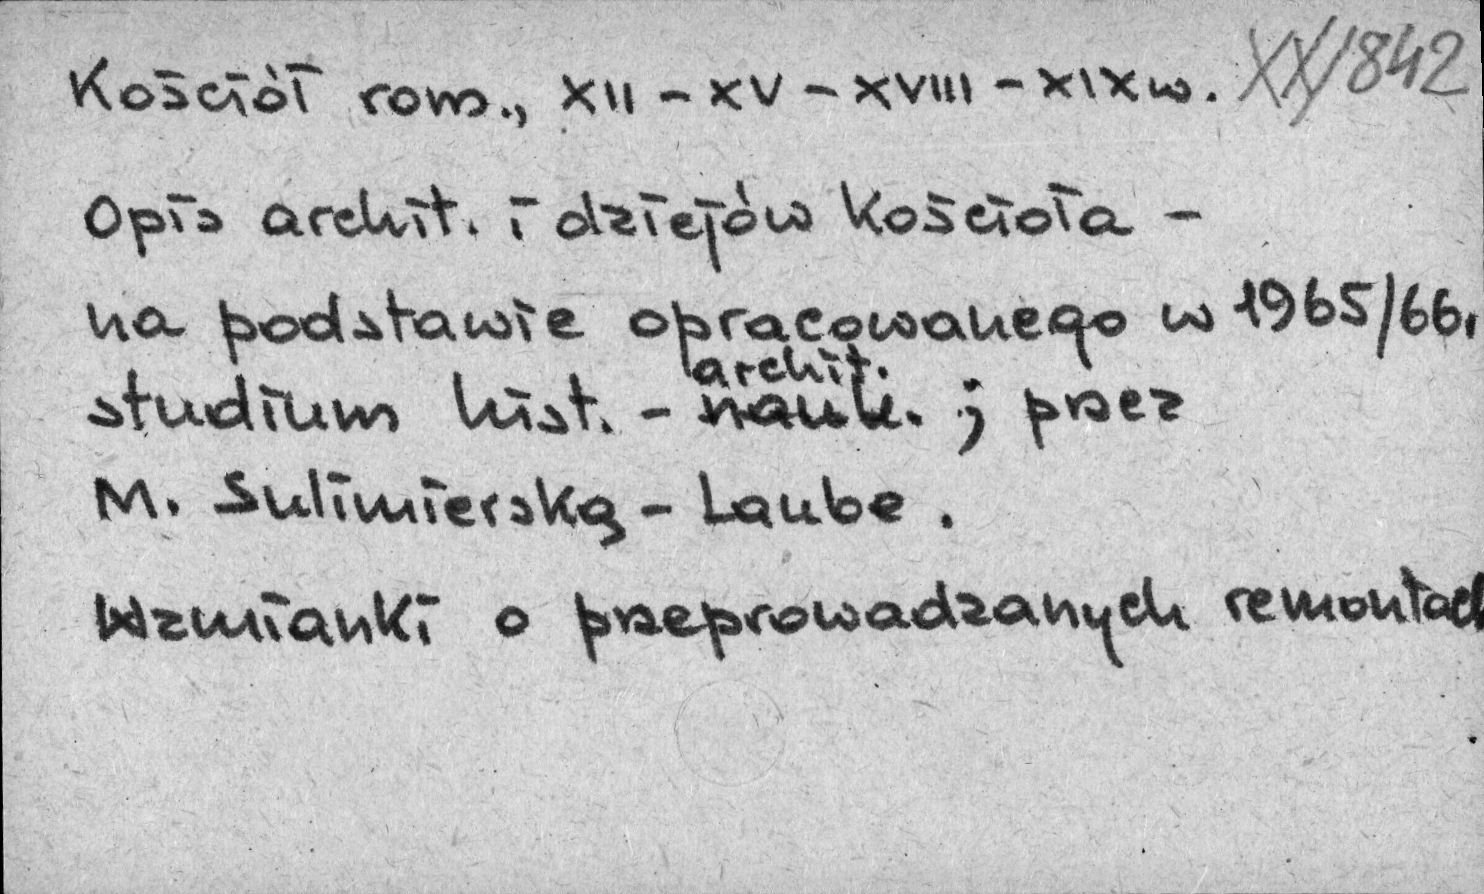 Kościół rom., XII - XV - XVIII - XIX w. XX/842
Opis archit. i dziejów kościoła -
na podstawie opracowanego w 1965/66.
archit.
studium hist. - nauk. ; przez
M. Sulimierską - Laube .
Wzmianki o przeprowadzanych remontach